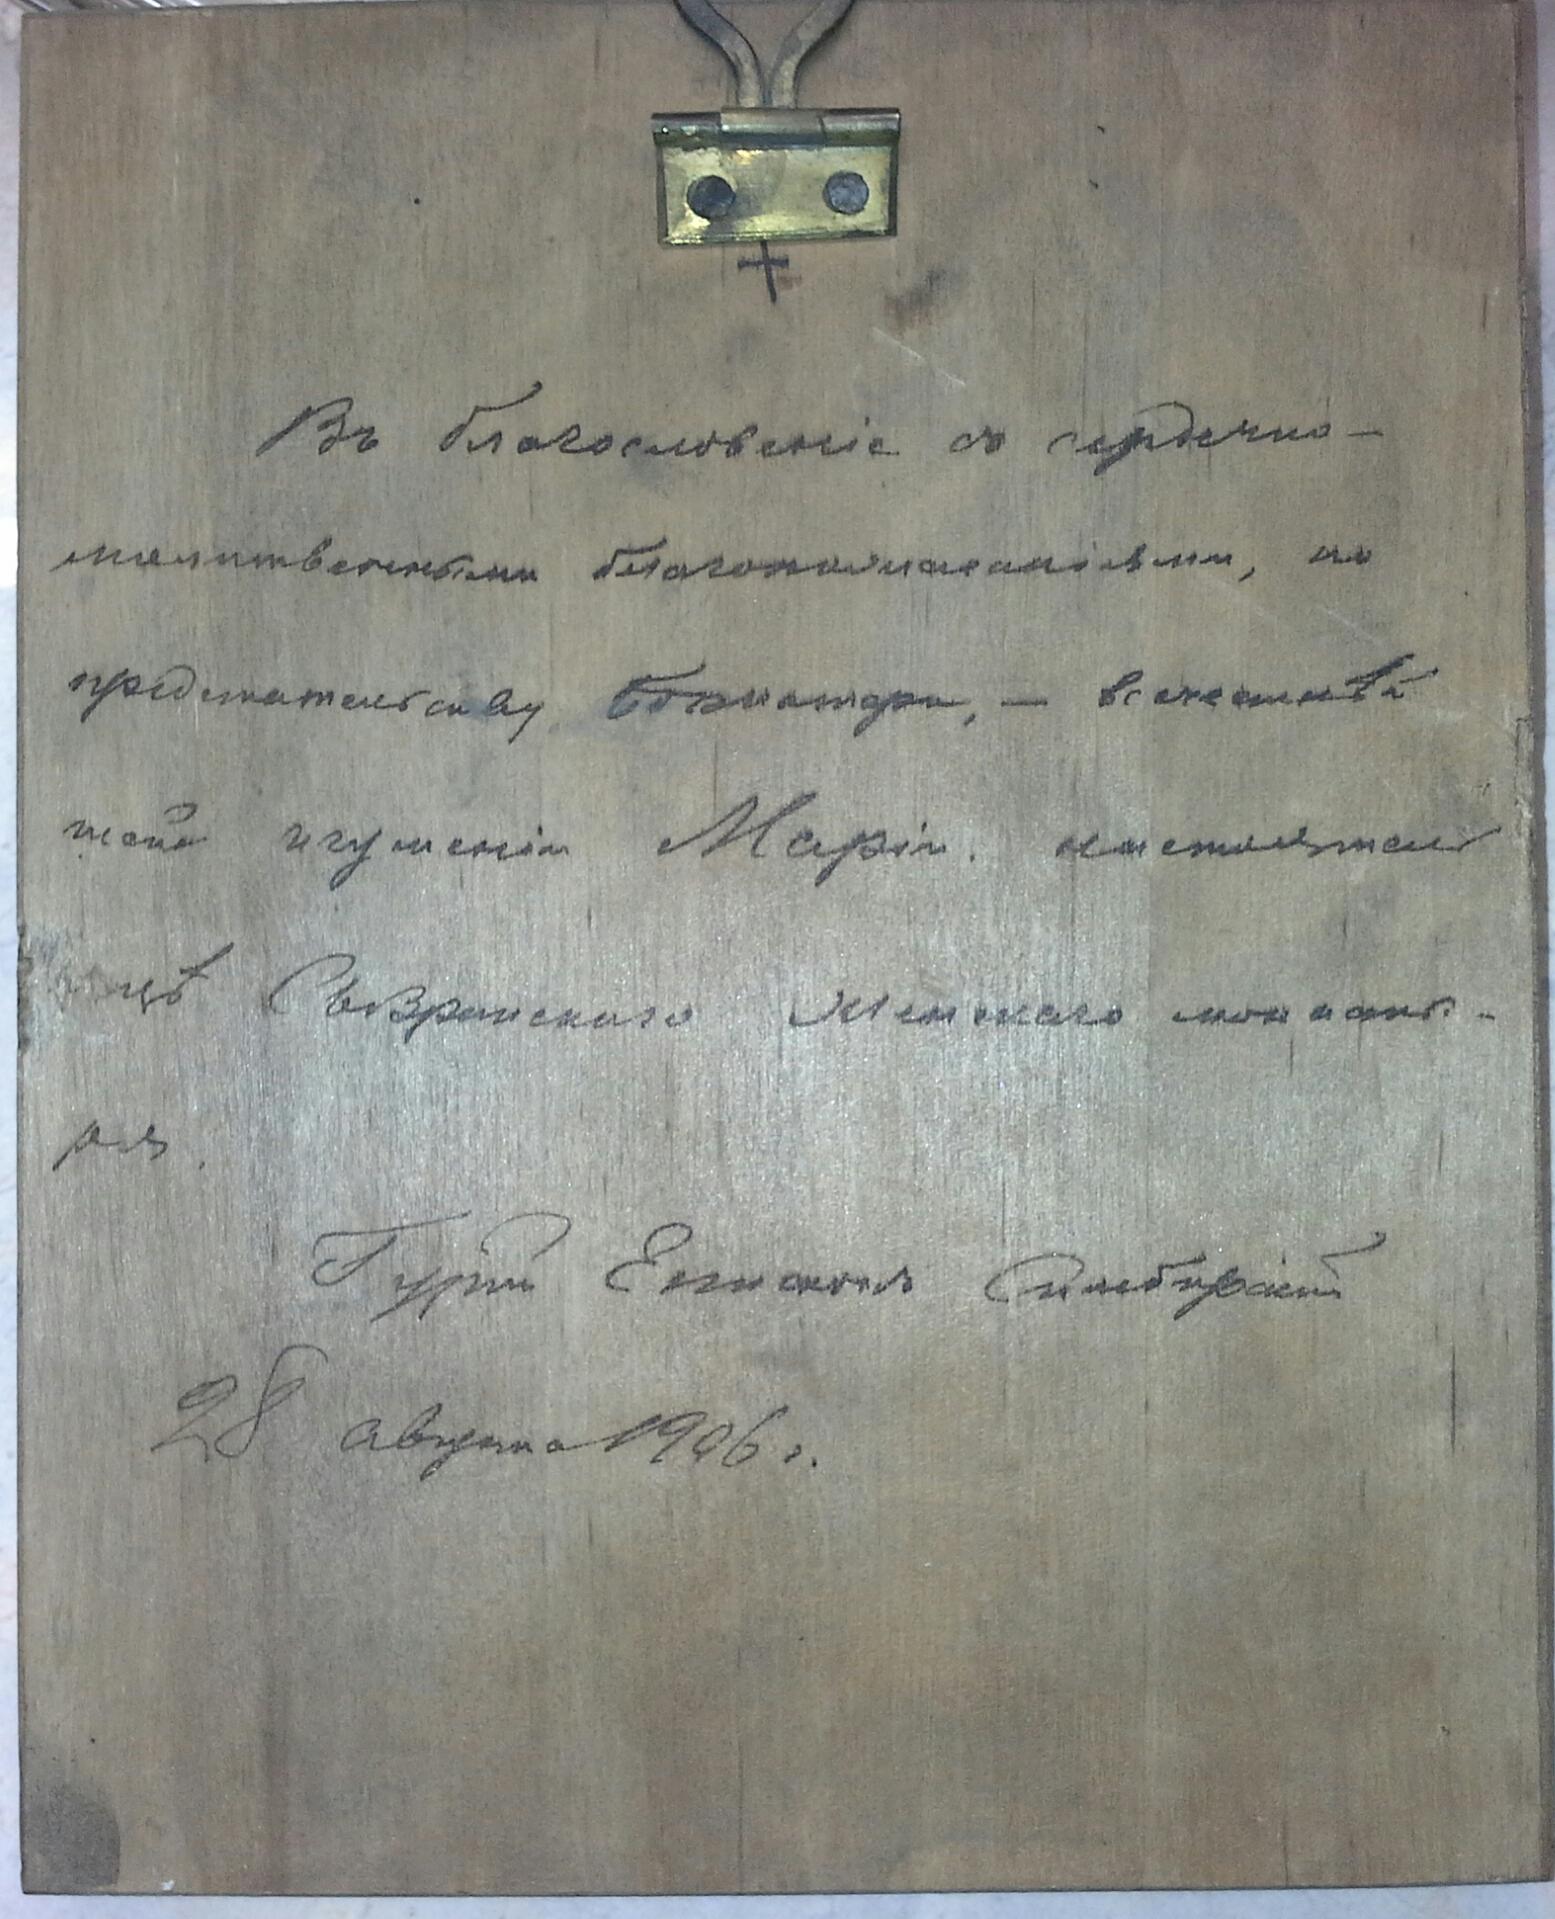 Въ благословеніе съ сердечно-
молитвенными благопожеланіями, по
предстательству Богоматери, — всечестнѣй
шей игуменіи Маріи. настоятель
цѣ женскаго монасты-
ря.
Гурій Епископъ Симбирскій
28 августа 1906 г.